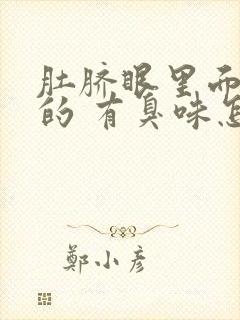 肚脐眼里面
的 有臭味怎
鄭小彥